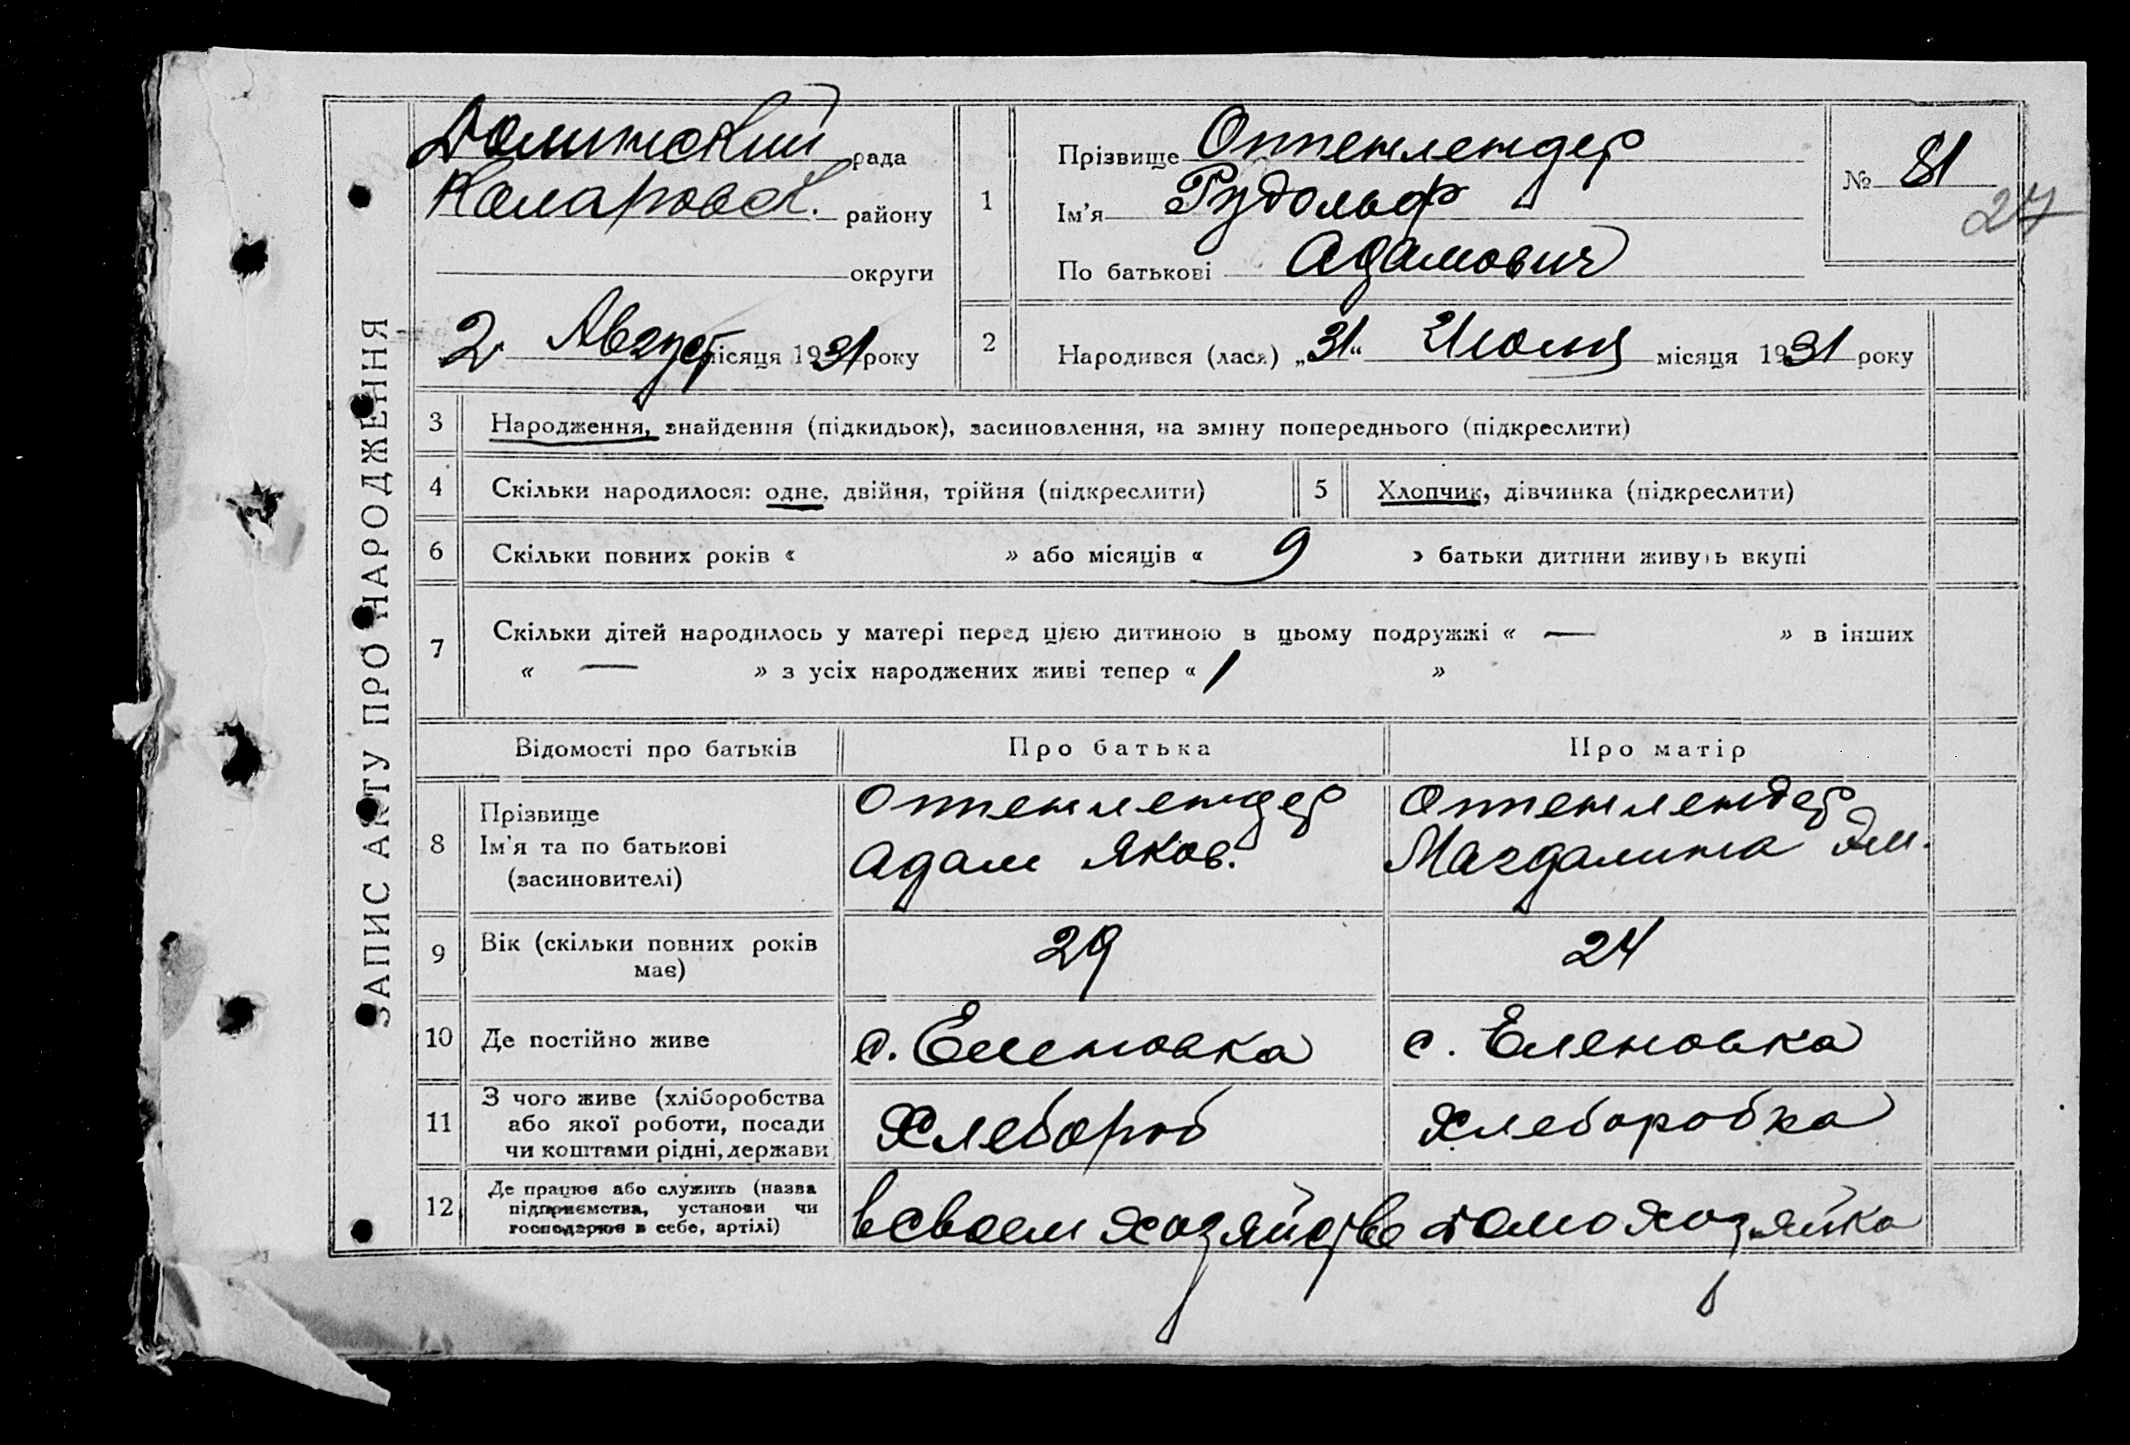 ЗАПИС АКТУ ПРО НАРОДЖЕННЯ
Долинский рада
Коларовск. району
округи
2 Август місяця 1931 року
1
Прізвище Оттенлендер
Ім'я Рудольф
По батькові Адамович
№ 81
27
2
Народився (лася) „31“ Июля місяця 1931 року
3 Народження, знайдення (підкидьок), засиновлення, на зміну попереднього (підкреслити)
4 Скільки народилося: одне, двійня, трійня (підкреслити)
5 Хлопчик, дівчинка (підкреслити)
6 Скільки повних років « » або місяців « 9 » батьки дитини живуть вкупі
7 Скільки дітей народилось у матері перед цією дитиною в цьому подружжі « — » в інших
« — » з усіх народжених живі тепер « 1 »
Відомості про батьків Про батька Про матір
8 Прізвище
Ім'я та по батькові
(засиновителі)
Оттенлендер
Адам Яков.
Оттенлендер
Магдалина
9 Вік (скільки повних років
має)
29
24
10 Де постійно живе
с. Еленовка
с. Еленовка
11 З чого живе (хліборобства
або якої роботи, посади
чи коштами рідні, держави
Хлебороб
Хлеборобка
12 Де працює або служить (назва
підприємства, установи чи
господарює в себе, артілі)
в своем хозяйстве
домохозяйка